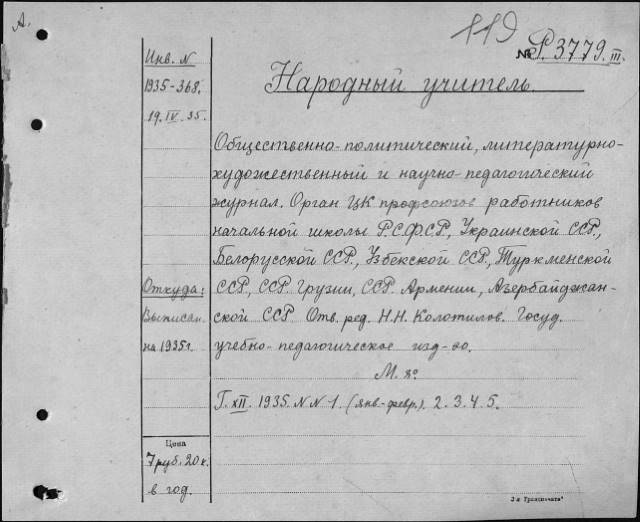 А.
119
№ Р. 3779. III.
Инв. N
1935-368.
19.IV.35.
Народный учитель.
Общественно-политический, литературно-
художественный и научно-педагогический
журнал. Орган ЦК профсоюзов работников
начальной школы Р.С.Ф.С.Р., Украинской ССР.,
Белорусской ССР., Узбекской ССР., Туркменской
ССР., ССР. Грузии, ССР. Армении, Азербайджан-
ской ССР. Отв. ред. Н.Н. Колотилов. Госуд.
учебно-педагогическое изд-во.
М. 8º
Г. XII. 1935. N N 1. (янв-февр.). 2. 3. 4. 5.
Откуда:
Выписан.
на 1935г.
Цена
7 руб. 20 к.
в год.